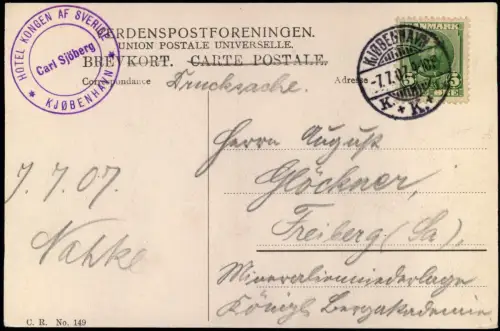 HOTEL KONGEN AF SVERIGE
Carl Sjöberg
* KJØBENHAVN *
VERDENSPOSTFORENINGEN.
UNION POSTALE UNIVERSELLE.
BREVKORT. CARTE POSTALE.
Correspondance
Adresse
Drucksache.
KJØBENHAVN
7.7.07
K. * K.
DANMARK
5 5
Herrn August
Glöckner,
Freiberg (Sa)
Mineralienniederlage
Königl. Bergakademie
7.7.07.
C. R. No. 149